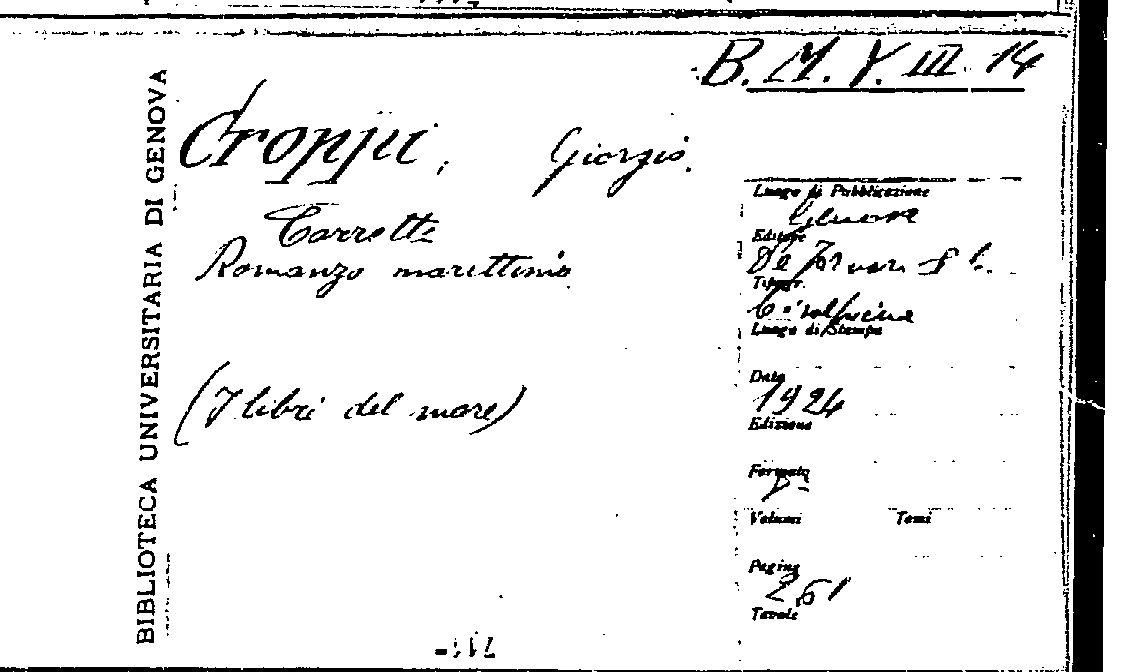 B. M. V. III. 14
BIBLIOTECA UNIVERSITARIA DI GENOVA
Croppi, Giorgio.
Romanzo marittimo
(I libri del mare)
Luogo di Pubblicazione
Genova
Editore
De Fornari
Tipogr.
Luogo di Stampa
Data
1924
Edizione
Formato
Volumi Tomi
Pagine
261
Tavole